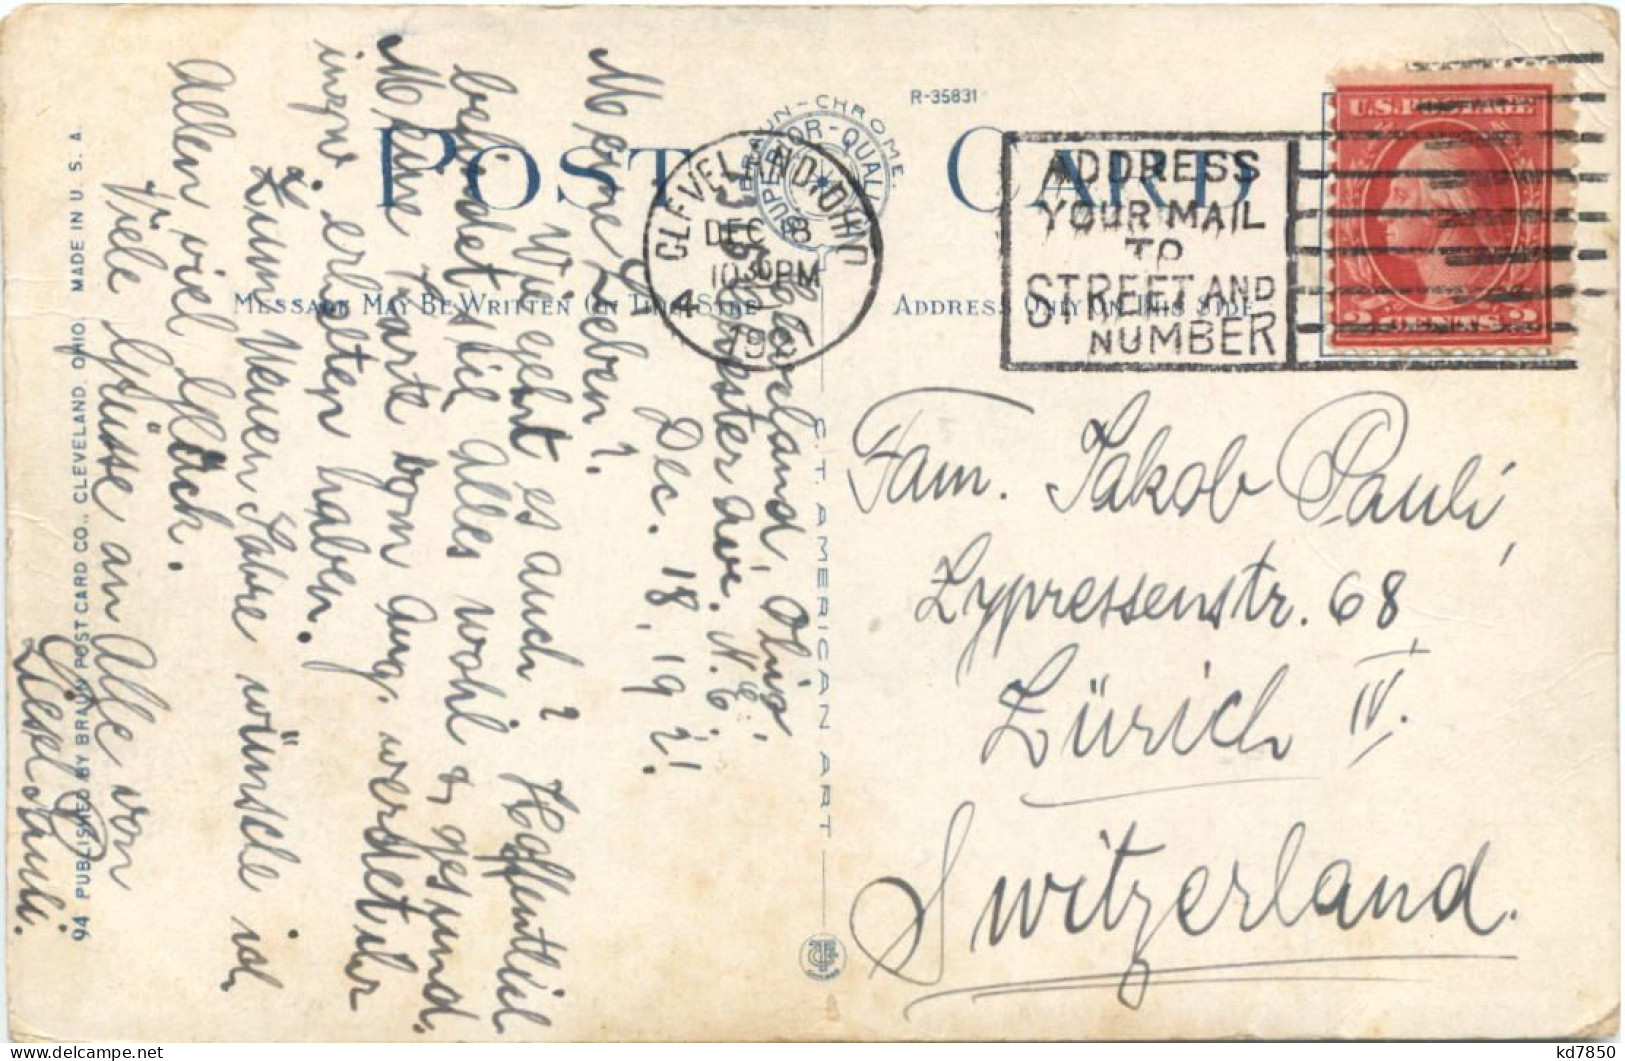 POST CARD
R-35831
BRAUN-CHROME.
SUPERIOR-QUALITY
CLEVELAND, OHIO
DEC 18
10 30 PM
1921
4
ADDRESS
YOUR MAIL
TO
STREET AND
NUMBER
U.S. POSTAGE
2 CENTS 2
MESSAGE MAY BE WRITTEN ON THIS SIDE
ADDRESS ONLY ON THIS SIDE
Cleveland, Ohio,
ave. N.E.
Dec. 18, 1921.
Meine Lieben!
Wie geht es auch? Hoffentlich
befindet sie alles wohl & gesund.
Meine Karte vom Aug. werdet ihr
inzw. erhalten haben.
Zum Neuen Jahre wünsche ich
Allen viel Glück.
Viele Grüsse an Alle von
Liesel Pauli.
Fam. Jakob Pauli,
Zypressenstr. 68
Zürich IV.
Switzerland.
C.T. AMERICAN ART
94 PUBLISHED BY BRAUN POST CARD CO., CLEVELAND, OHIO. MADE IN U. S. A.
kd7850